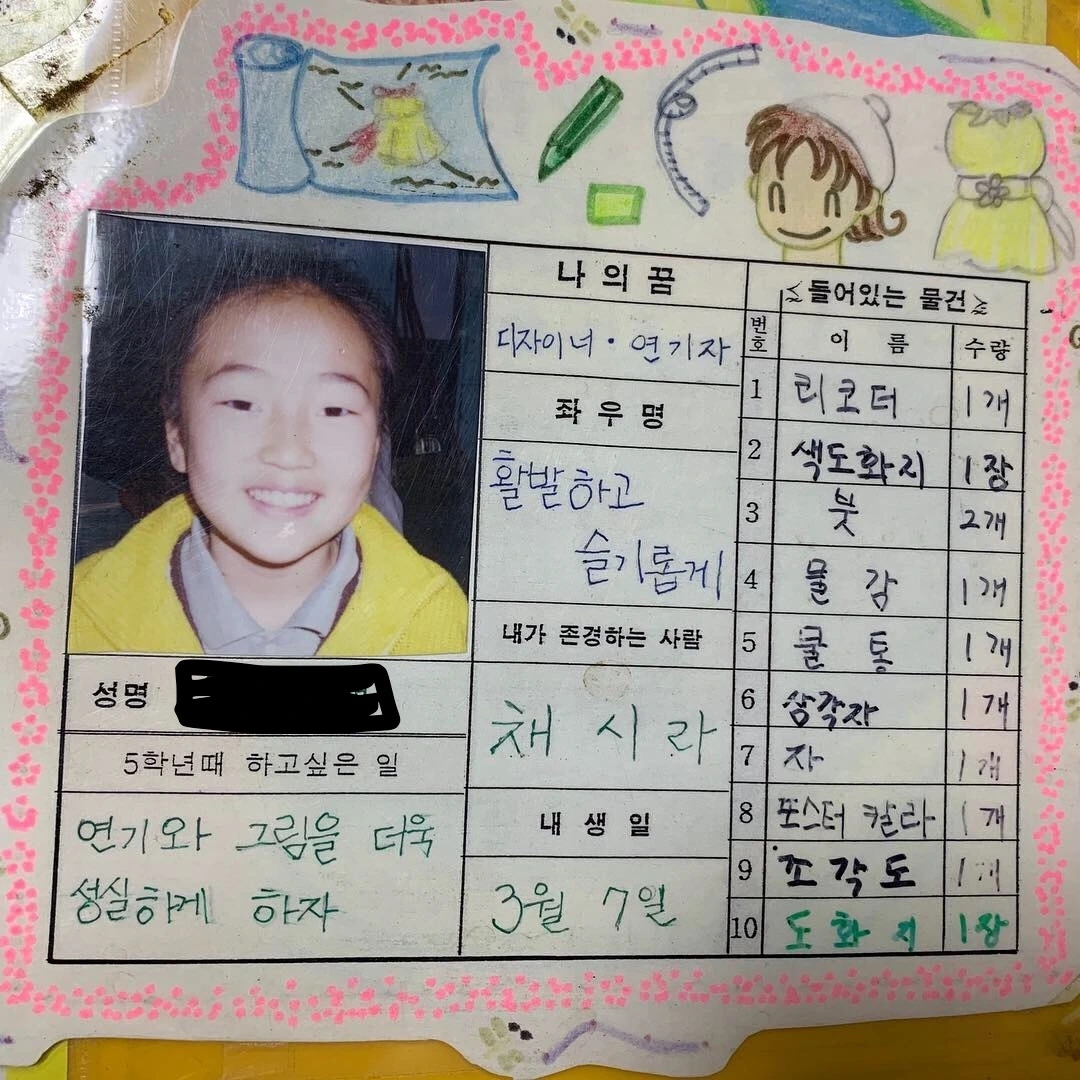 나의꿈
디자이너 · 연기자
좌우명
활발하고
슬기롭게
내가 존경하는 사람
채시라
내생일
3월 7일
성명
5학년때 하고싶은 일
연기와 그림을 더욱
성실하게 하자
<들어있는 물건>
번호 이름 수량
1 리코터 1개
2 색도화지 1장
3 붓 2개
4 물감 1개
5 물통 1개
6 삼각자 1개
7 자 1개
8 포스터 칼라 1개
9 조각도 1개
10 도화지 1장